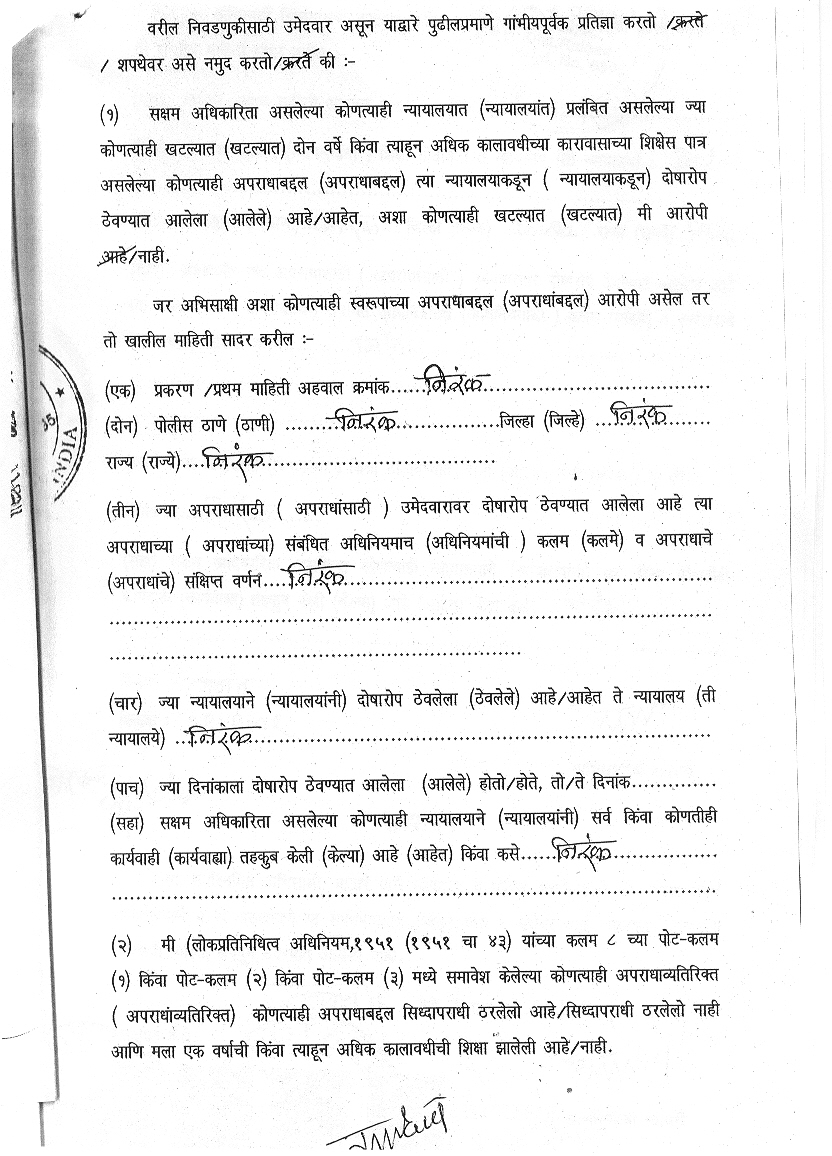 वरील निवडणुकीसाठी उमेदवार असून याद्वारे पुढीलप्रमाणे गांभीयपूर्वक प्रतिज्ञा करतो /करते
/ शपथेवर असे नमुद करतो/करते की :-
(१) सक्षम अधिकारिता असलेल्या कोणत्याही न्यायालयात (न्यायालयांत) प्रलंबित असलेल्या ज्या
कोणत्याही खटल्यात (खटल्यात) दोन वर्षे किंवा त्याहून अधिक कालावधीच्या कारावासाच्या शिक्षेस पात्र
असलेल्या कोणत्याही अपराधाबद्दल (अपराधाबद्दल) त्या न्यायालयाकडून ( न्यायालयाकडून) दोषारोप
ठेवण्यात आलेला (आलेले) आहे/आहेत, अशा कोणत्याही खटल्यात (खटल्यात) मी आरोपी
आहे/नाही.
जर अभिसाक्षी अशा कोणत्याही स्वरूपाच्या अपराधाबद्दल (अपराधांबद्दल) आरोपी असेल तर
तो खालील माहिती सादर करील :-
(एक) प्रकरण /प्रथम माहिती अहवाल क्रमांक.....निरंक..............................
(दोन) पोलीस ठाणे (ठाणी) ........निरंक...............जिल्हा (जिल्हे) ...निरंक.......
राज्य (राज्ये)....निरंक...................................
(तीन) ज्या अपराधासाठी ( अपराधांसाठी ) उमेदवारावर दोषारोप ठेवण्यात आलेला आहे त्या
अपराधाच्या ( अपराधांच्या) संबंधित अधिनियमाच (अधिनियमांची ) कलम (कलमे) व अपराधाचे
(अपराधांचे) संक्षिप्त वर्णन....निरंक.......................................................
..........................................................................................
..............................................................
(चार) ज्या न्यायालयाने (न्यायालयांनी) दोषारोप ठेवलेला (ठेवलेले) आहे/आहेत ते न्यायालय (ती
न्यायालये) ..निरंक....................................................................
(पाच) ज्या दिनांकाला दोषारोप ठेवण्यात आलेला (आलेले) होतो/होते, तो/ते दिनांक..............
(सहा) सक्षम अधिकारिता असलेल्या कोणत्याही न्यायालयाने (न्यायालयांनी) सर्व किंवा कोणतीही
कार्यवाही (कार्यवाह्या) तहकुब केली (केल्या) आहे (आहेत) किंवा कसे......निरंक.................
..........................................................................................
(२) मी (लोकप्रतिनिधित्व अधिनियम,१९५१ (१९५१ चा ४३) यांच्या कलम ८ च्या पोट-कलम
(१) किंवा पोट-कलम (२) किंवा पोट-कलम (३) मध्ये समावेश केलेल्या कोणत्याही अपराधाव्यतिरिक्त
( अपराधांव्यतिरिक्त) कोणत्याही अपराधाबद्दल सिध्दापराधी ठरलेलो आहे/सिध्दापराधी ठरलेलो नाही
आणि मला एक वर्षाची किंवा त्याहून अधिक कालावधीची शिक्षा झालेली आहे/नाही.
INDIA